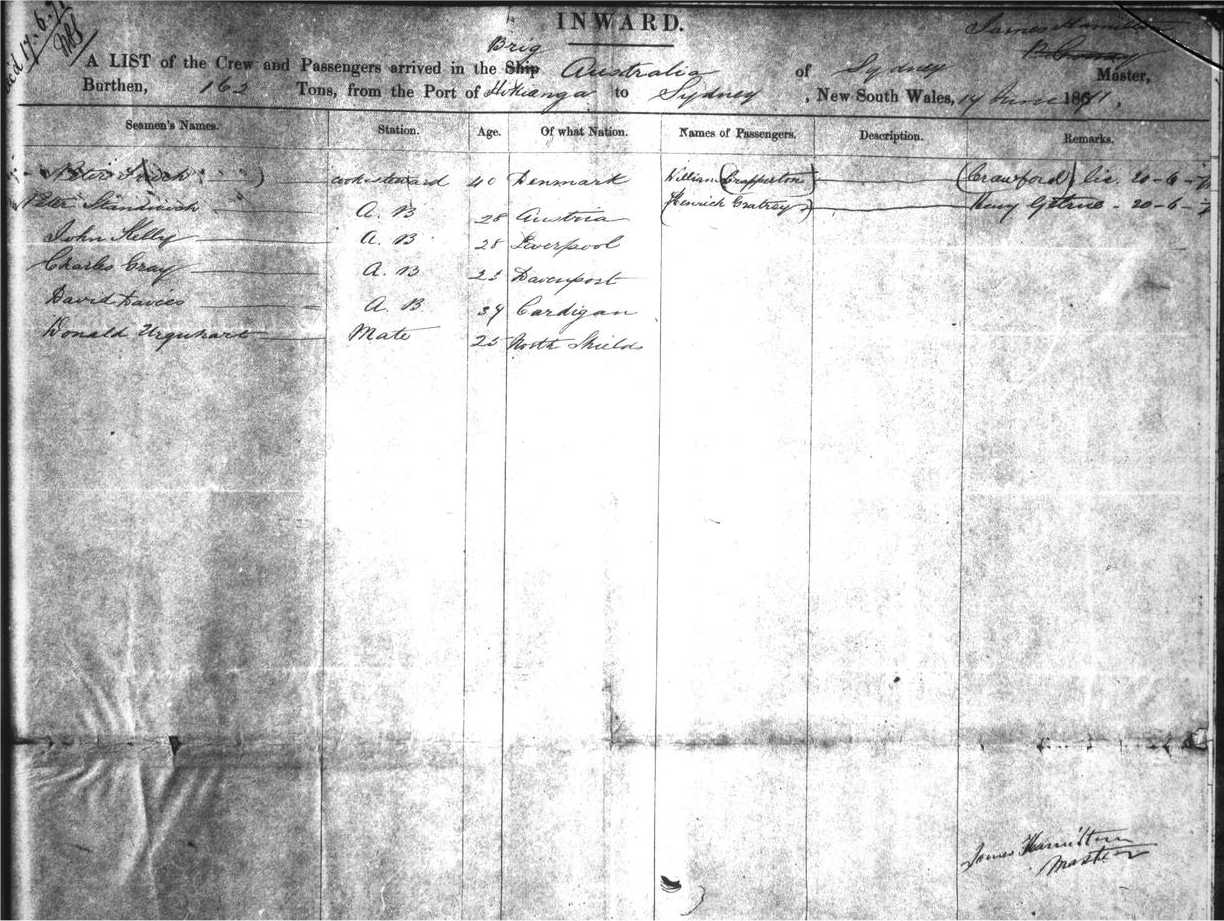 INWARD.
17.6.71
James Hamilton
Brig
A LIST of the Crew and Passengers arrived in the Ship Australia of Sydney Master,
Burthen, 162 Tons, from the Port of Hokianga to Sydney, New South Wales, 17 June 1871,
Seamen's Names. Station. Age. Of what Nation. Names of Passengers. Description. Remarks.
Peter cook & steward 40 Denmark William (Crapperton) (Crawford) lic. 20-6-71
Peter A.B 28 Austria Henrich 20-6-7
John Kelly A.B 28 Liverpool
Charles Gray A.B 23 Davenport
David Davies A.B 39 Cardigan
Donald Urquhart Mate 25 North Shields
James Hamilton
Master